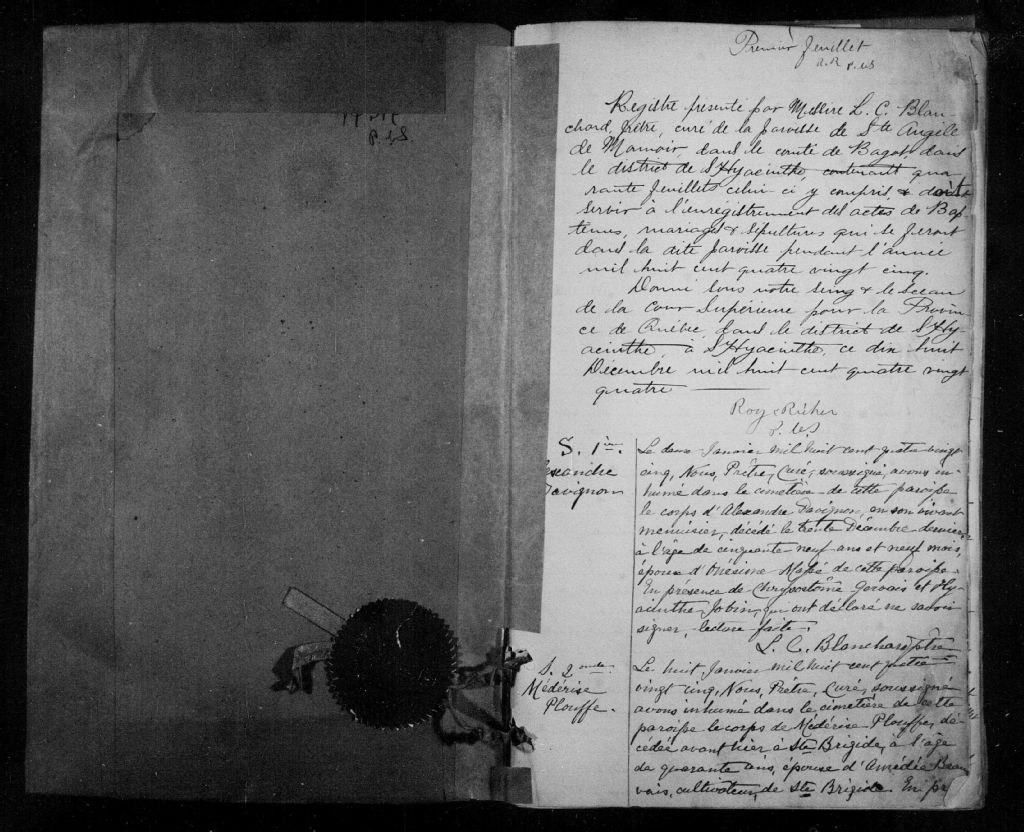 Premier feuillet
Registre présenté par Messire L. C. Blan-
chard, prêtre, curé de la paroisse de Ste Angèle
de Monnoir, dans le comté de Bagot, dans
le district de St Hyacinthe, contenant qua
rante feuillets celui ci y compris, & doit
servir à l'enrégistrement des actes de Bap-
temes, mariages & sépultures qui se feront
dans la dite paroisse pendant l'année
mil huit cent quatre vingt cinq.
Donné sous notre seing & le sceau
de la Cour Supérieure pour la Provin-
ce de Québec, dans le district de St Hy-
acinthe, à St Hyacinthe, ce dix huit
Décembre mil huit cent quatre vingt
quatre
Roy & Richer
P. C.S
S. 1ière.
exandre
Davignon
Le deux Janvier mil huit cent quatre vingt
cinq, Nous, Prêtre, Curé, soussigné, avons in-
humé dans le cimetière de cette paroisse
le corps d'Alexandre Davignon, en son vivant
menuisier, décédé le trente Décembre dernier
à l'âge de cinquante-neuf ans et neuf mois,
époux d'Onésime de cette paroisse.
En présence de Chrysostôme Gervais et Hy-
acinthe Jobin, qui ont déclaré ne savoir
signer, lecture faite.
L. C. Blanchard ptre
S. 2onde
Médérise
Plouffe.
Le huit Janvier mil huit cent quatre
vingt cinq, Nous, Prêtre, Curé, soussigné
avons inhumé dans le cimetière de cette
paroisse le corps de Médérise Plouffe, dé-
cédée avant hier à Ste Brigide, à l'âge
de quarante ans, épouse d'Amédée Beau
vais, cultivateur, de Ste Brigide. En pr